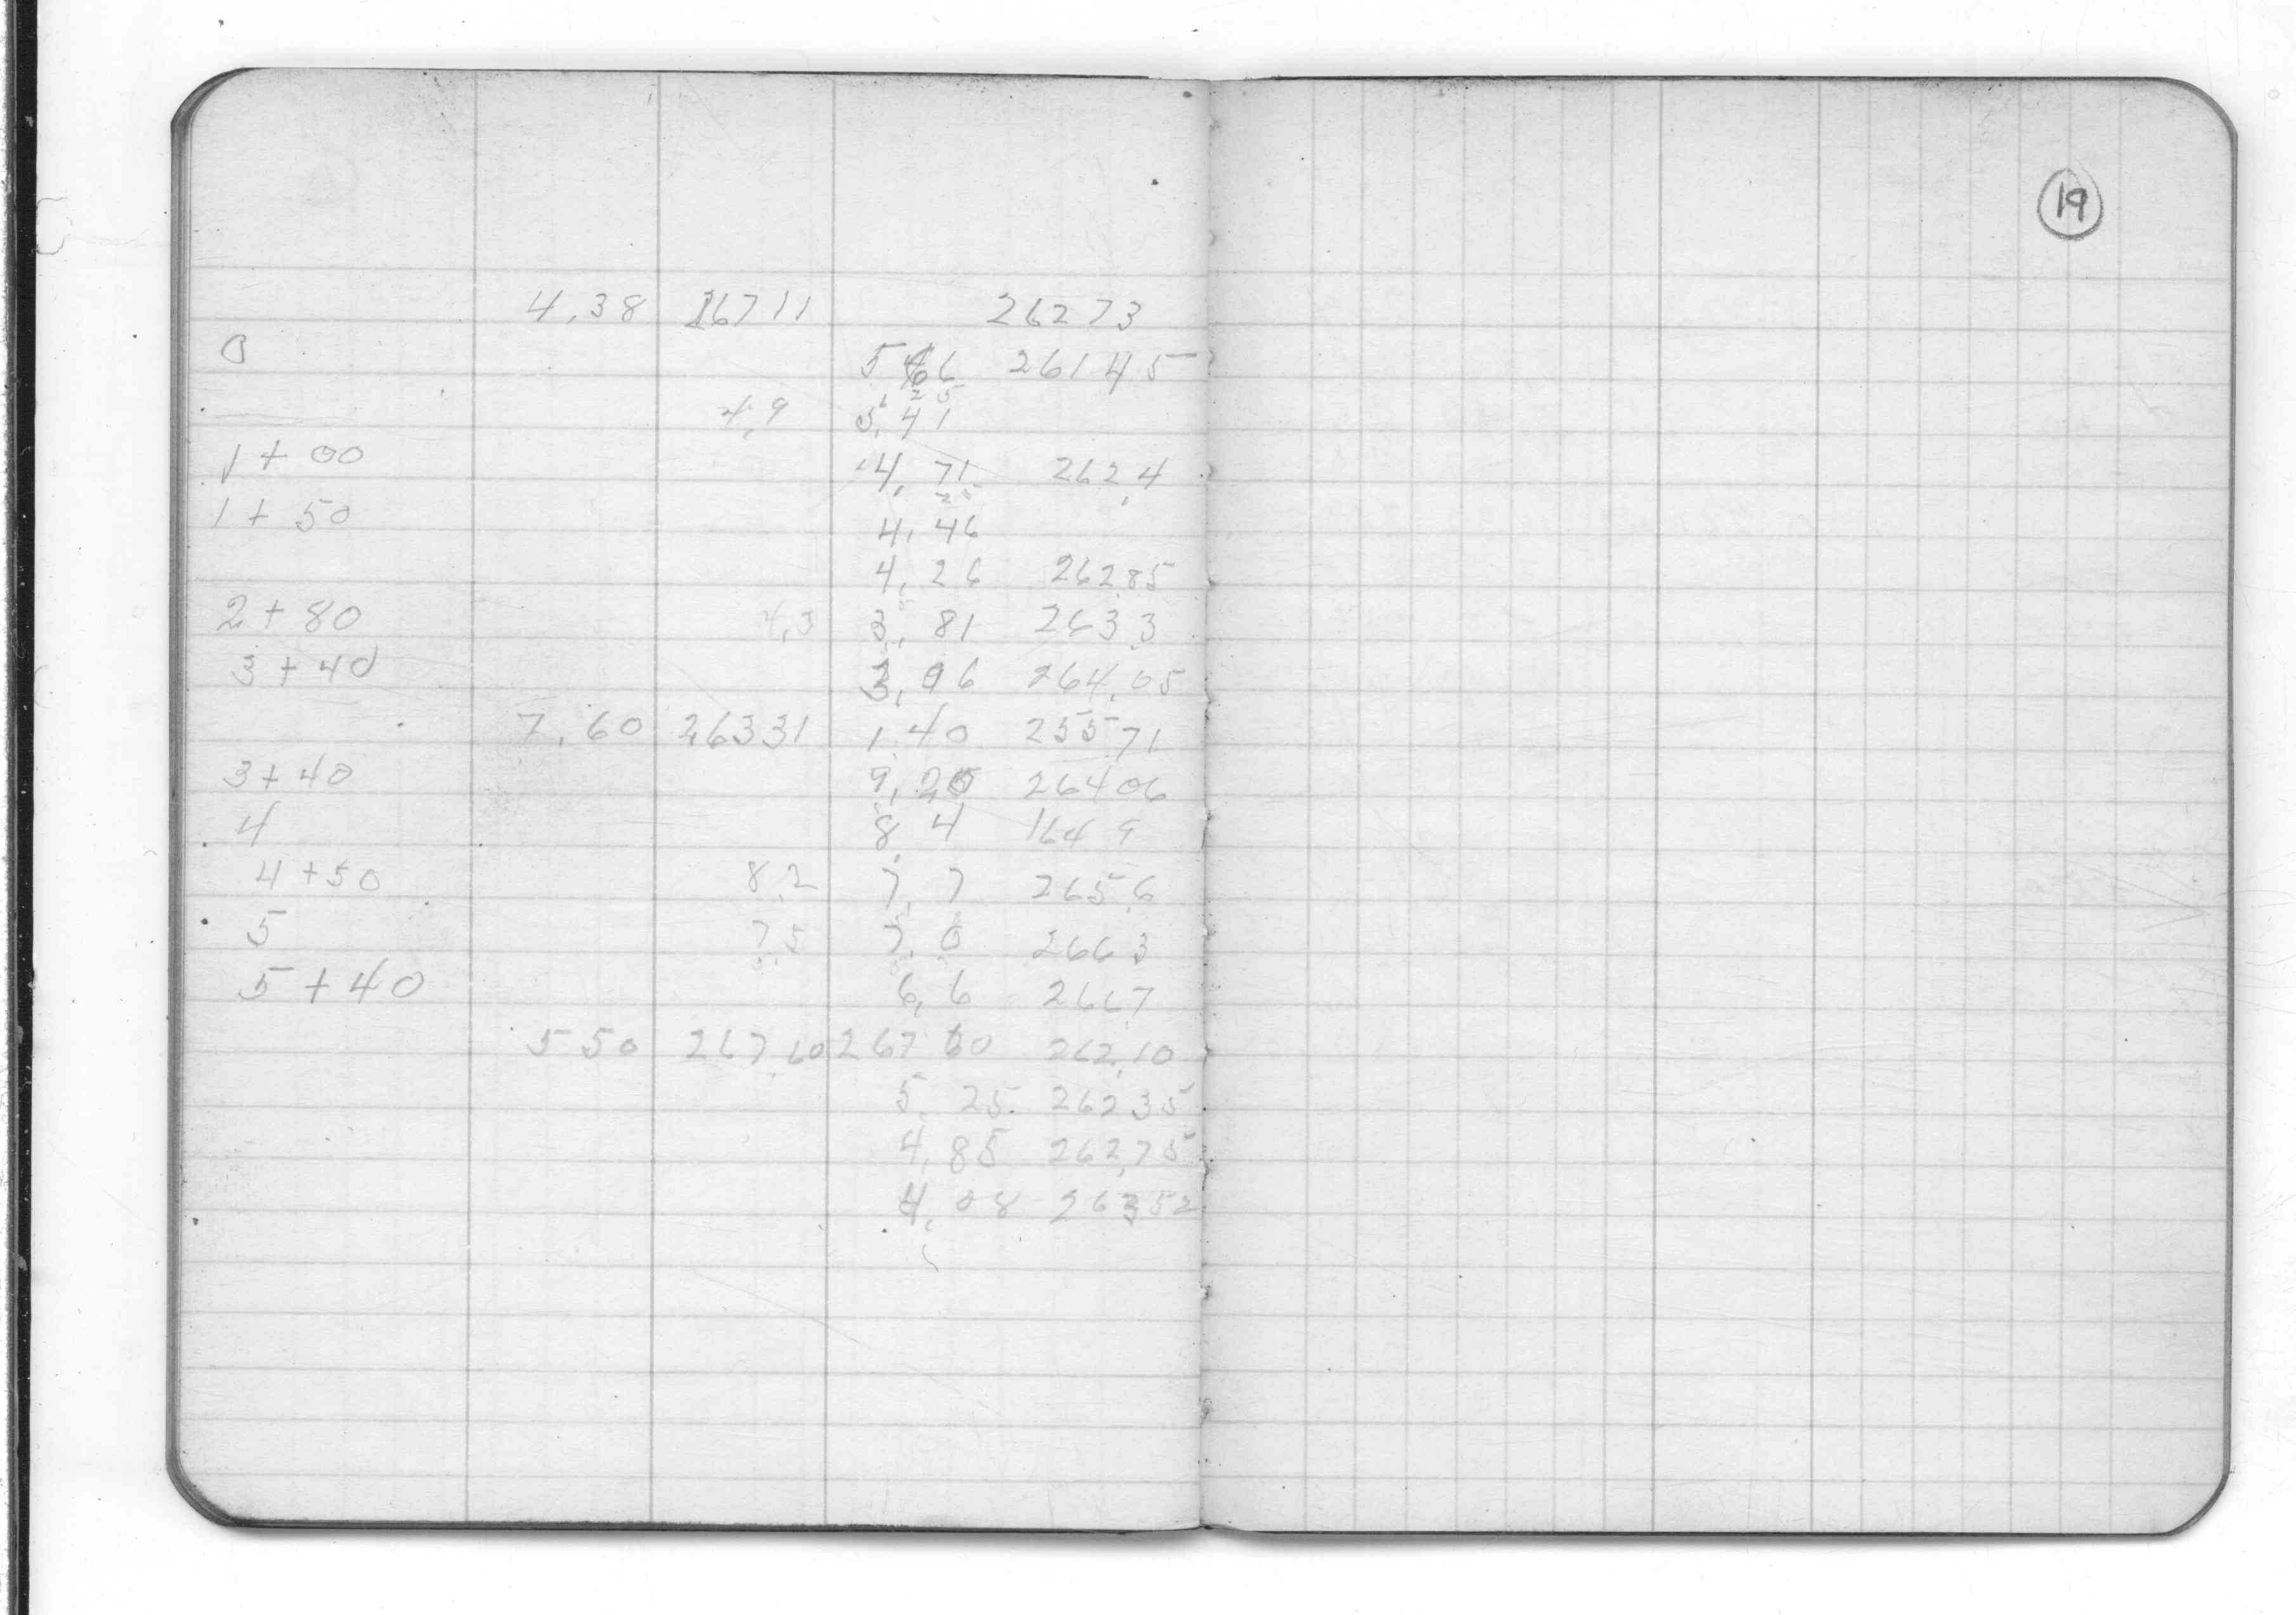 19
4.38 26711 26273
0 5 66 26145
4.9 5.41
1+00 4.71 262.4
1+50 4.46
4.26 262.85
2+80 4.3 3.81 263.3
3+40 3.06 264.05
7.60 26331 1.40 25571
3+40 9.25 26406
4 8.4 164 9
4+50 8.2 7.7 265.6
5 7.5 7.0 266 3
5+40 6.6 266.7
5 50 267.60 267 60 262.10
5.25 262 35
4.85 262.75
4.08 263 52